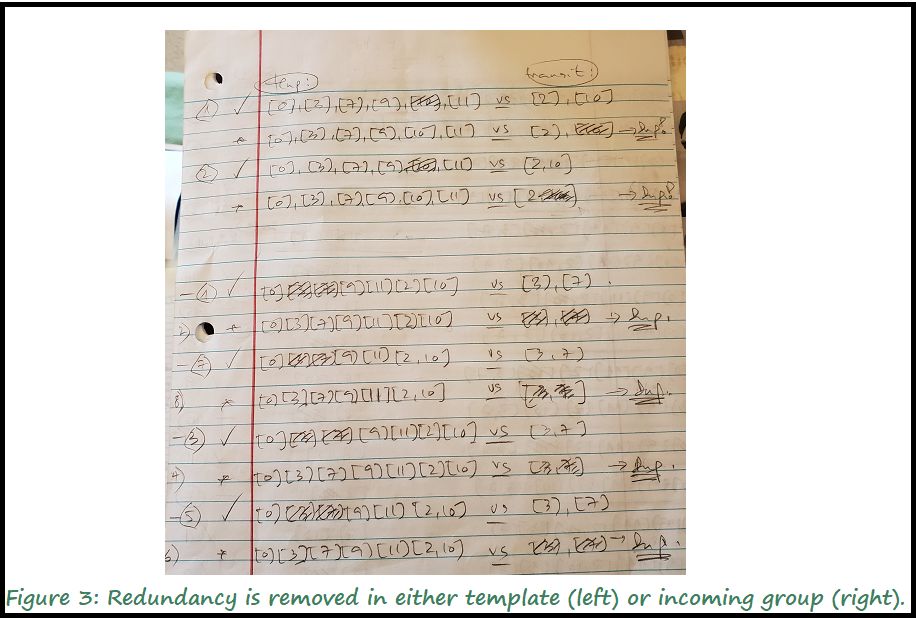 temp: transit:
1 ✓ [0],[3],[7],[9],[11] vs [2],[10]
* [0],[3],[7],[9],[10],[11] vs [2], → Dup.
2 ✓ [0],[3],[7],[9],[11] vs [2,10]
* [0],[3],[7],[9],[10],[11] vs [2 ] → Dup.
-1 ✓ [0] [9][11][2][10] vs [3],[7].
2) * [0][3][7][9][11][2][10] vs , → Dup.
-7 ✓ [0] [9][11][2,10] vs [3,7]
8) * [0][3][7][9][11][2,10] vs [ ] → Dup.
-3 ✓ [0] [9][11][2][10] vs [3,7]
4) * [0][3][7][9][11][2][10] vs → Dup.
-5 ✓ [0] [9][11][2,10] vs [3],[7]
6) * [0][3][7][9][11][2,10] vs , → Dup.
Figure 3: Redundancy is removed in either template (left) or incoming group (right).